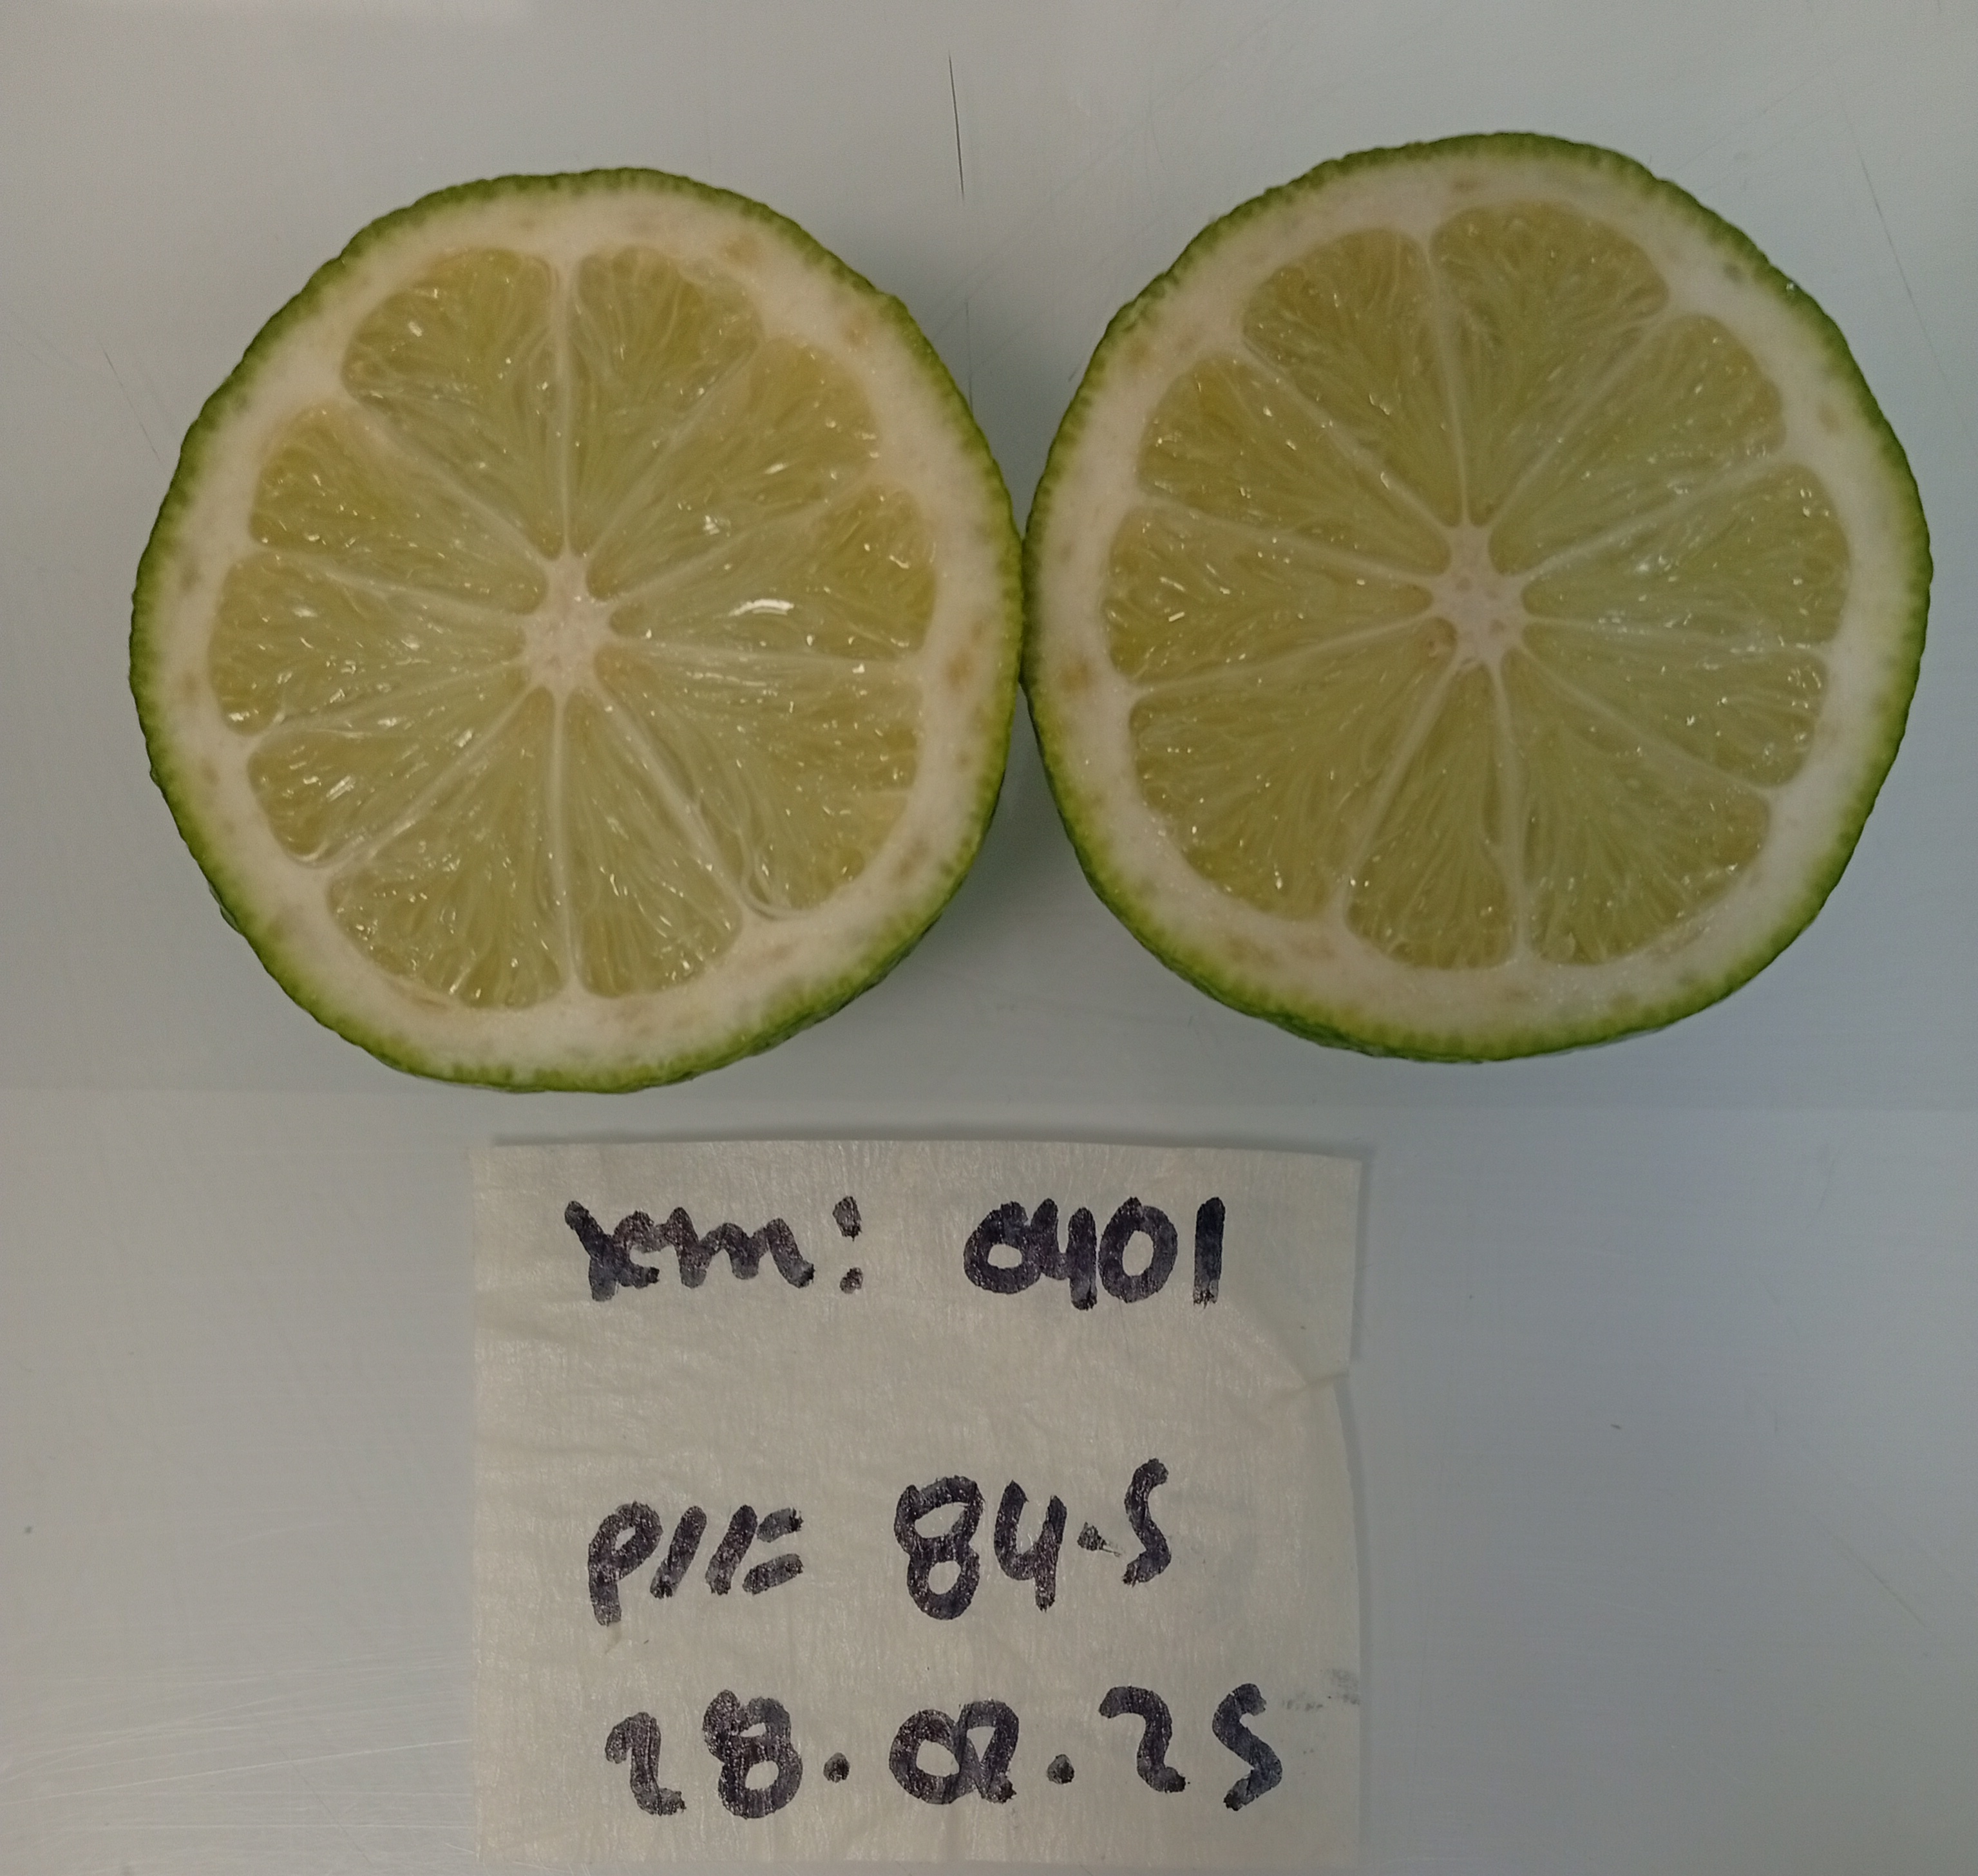 xcm: 0401
P11= 84.5
28.02.25